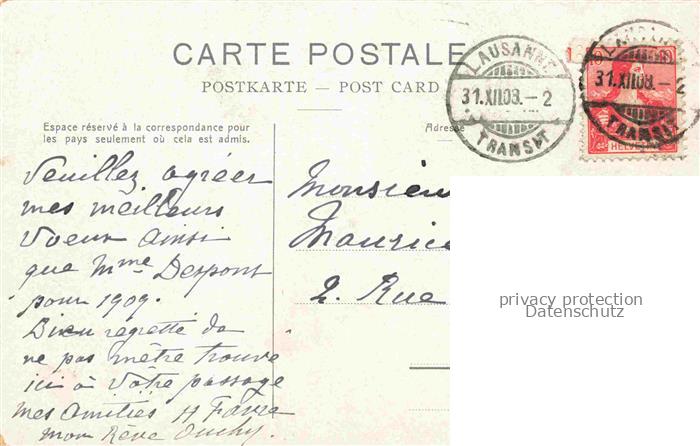 CARTE POSTALE
POSTKARTE — POST CARD
Espace réservé à la correspondance pour
les pays seulement où cela est admis.
Adresse
LAUSANNE
31.XII.08. – 2
TRANSIT
LAUSANNE
31.XII.08. – 2
TRANSIT
10
HELVETIA
Veuillez agréer
mes meilleurs
Voeux Ainsi
que Mme Despont
pour 1909.
Bien regretté de
ne pas mêtre trouvé
ici à Vôtre passage
Mes Amitiés H Favre
mon Rêve Ouchy.
Monsieur
Maurice
2. Rue
privacy protection
Datenschutz